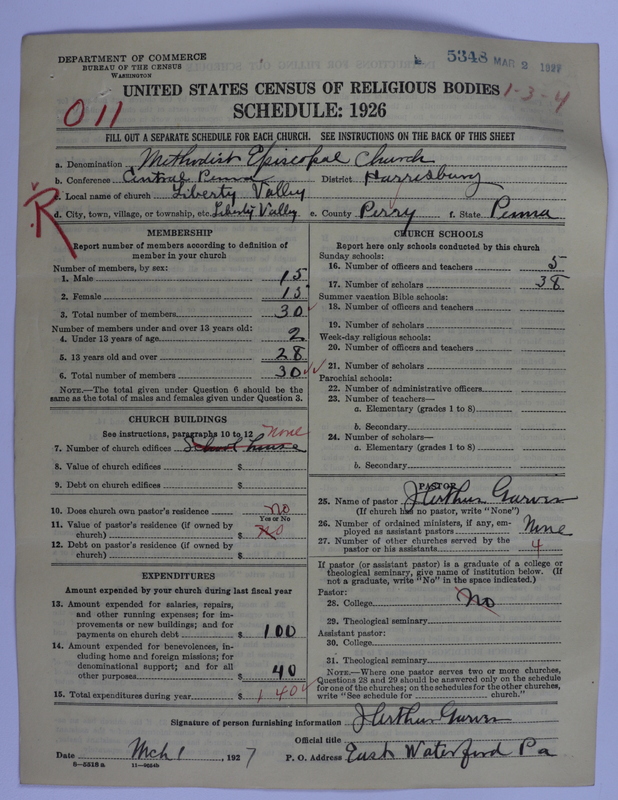 DEPARTMENT OF COMMERCE
BUREAU OF THE CENSUS
WASHINGTON
5348 MAR 2 1927
UNITED STATES CENSUS OF RELIGIOUS BODIES
1-3-4
011
SCHEDULE: 1926
FILL OUT A SEPARATE SCHEDULE FOR EACH CHURCH. SEE INSTRUCTIONS ON THE BACK OF THIS SHEET
a. Denomination Methodist Episcopal Church
b. Conference Central Penna District Harrisburg
c. Local name of church Liberty Valley
d. City, town, village, or township, etc. Liberty Valley e. County Perry f. State Penna
R
MEMBERSHIP
Report number of members according to definition of
member in your church
Number of members, by sex:
1. Male 15
2. Female 15
3. Total number of members 30
Number of members under and over 13 years old:
4. Under 13 years of age 2
5. 13 years old and over 28
6. Total number of members 30
NOTE.—The total given under Question 6 should be
same as the total of males and females given under Question 3.
CHURCH BUILDINGS
See instructions, paragraphs 10 to 12 none
7. Number of church edifices School house
8. Value of church edifices $
9. Debt on church edifices $
10. Does church own pastor's residence no
Yes or No
11. Value of pastor's residence (if owned by
church) $ No
12. Debt on pastor's residence (if owned by
church) $
EXPENDITURES
Amount expended by your church during last fiscal year
13. Amount expended for salaries, repairs,
and other running expenses; for im-
provements or new buildings; and for
payments on church debt $ 100
14. Amount expended for benevolences, in-
cluding home and foreign missions; for
denominational support; and for all
other purposes $ 40
15. Total expenditures during year $ 140
CHURCH SCHOOLS
Report here only schools conducted by this church
Sunday schools:
16. Number of officers and teachers 5
17. Number of scholars 38
Summer vacation Bible schools:
18. Number of officers and teachers
19. Number of scholars
Week-day religious schools:
20. Number of officers and teachers
21. Number of scholars
Parochial schools:
22. Number of administrative officers
23. Number of teachers—
a. Elementary (grades 1 to 8)
b. Secondary
24. Number of scholars—
a. Elementary (grades 1 to 8)
b. Secondary
PASTOR
25. Name of pastor J Arthur
(If church has no pastor, write "None")
26. Number of ordained ministers, if any, em-
ployed as assistant pastors None
27. Number of other churches served by the
pastor or his assistants 4
If pastor (or assistant pastor) is a graduate of a college or
theological seminary, give name of institution below. (If
not a graduate, write "No" in the space indicated.)
Pastor:
28. College No
29. Theological seminary
Assistant pastor:
30. College
31. Theological seminary
NOTE.—Where one pastor serves two or more churches,
Questions 28 and 29 should be answered only on the schedule
for one of the churches; on the schedules for the other churches,
write "See schedule for church."
Signature of person furnishing information J Arthur
Official title
Date Mch 1, 1927 P. O. Address East Waterford Pa
8-5518 a